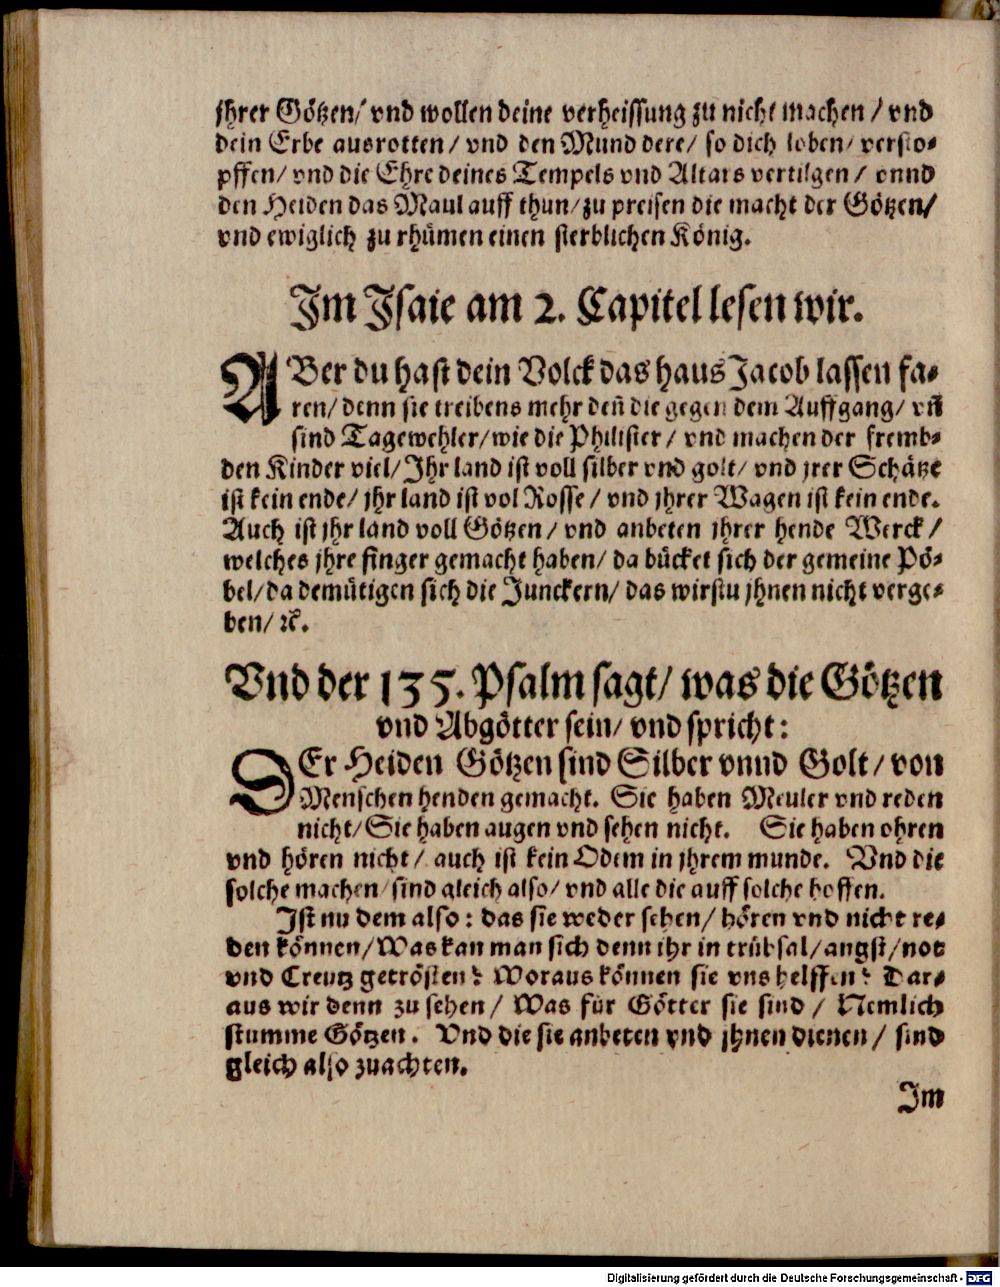 jhrer Götzen/ vnd wollen deine verheissung zu nicht machen / vnd
dein Erbe ausrotten/ vnd den Mund dere/ so dich loben/ versto-
pffen/ vnd die Ehre deines Tempels vnd Altars vertilgen/ vnnd
den Heiden das Maul auff thun/ zu preisen die macht der Götzen/
vnd ewiglich zu rhümen einen sterblichen König.
Im Isaie am 2. Capitel lesen wir.
ABer du hast dein Volck das haus Jacob lassen fa-
ren/ denn sie treibens mehr deñ die gegen dem Auffgang/ vñ
sind Tagewehler/ wie die Philister/ vnd machen der fremb-
den Kinder viel/ Ihr land ist voll silber vnd golt/ vnd jrer Schätze
ist kein ende/ jhr land ist vol Rosse/ vnd jhrer Wagen ist kein ende.
Auch ist jhr land voll Götzen/ vnd anbeten jhrer hende Werck/
welches jhre finger gemacht haben/ da bücket sich der gemeine Pö-
bel/ da demütigen sich die Junckern/ das wirstu jhnen nicht verge-
ben/ ꝛc.
Vnd der 135. Psalm sagt/ was die Götzen
vnd Abgötter sein/ vnd spricht:
DEr Heiden Götzen sind Silber vnnd Golt/ von
Menschen henden gemacht. Sie haben Meuler vnd reden
nicht/ Sie haben augen vnd sehen nicht. Sie haben ohren
vnd hören nicht/ auch ist kein Odem in jhrem munde. Vnd die
solche machen/ sind gleich also/ vnd alle die auff solche hoffen.
Ist nu dem also: das sie weder sehen/ hören vnd nicht re-
den können/ Was kan man sich denn ihr in trübsal/ angst/ not
vnd Creutz getrösten? Woraus können sie vns helffen? Dar-
aus wir denn zu sehen/ Was für Götter sie sind / Nemlich
stumme Götzen. Vnd die sie anbeten vnd jhnen dienen/ sind
gleich also zuachten.
Im
Digitalisierung gefördert durch die Deutsche Forschungsgemeinschaft - DFG